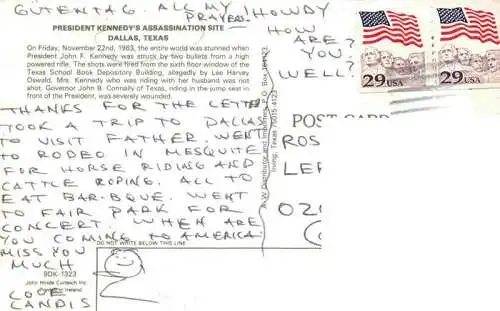 GUTENTAG. ALL MY
PRAYERS.
HOWDY
HOW
ARE
YOU?
WELL?
PRESIDENT KENNEDY'S ASSASSINATION SITE
DALLAS, TEXAS
On Friday, November 22nd, 1963, the entire world was stunned when
President John F. Kennedy was struck by two bullets from a high
powered rifle. The shots were fired from the sixth floor window of the
Texas School Book Depository Building, allegedly by Lee Harvey
Oswald. Mrs. Kennedy who was riding with her husband was not
shot. Governor John B. Connally of Texas, riding in the jump seat in
front of the President, was severely wounded.
THANKS FOR THE LETTE
TOOK A TRIP TO DALLAS
TO VISIT FATHER. WENT
TO RODEO IN MESQUITE
FOR HORSE RIDING AND
CATTLE ROPING. ALL TO
EAT BAR-BQUE. WENT
TO FAIR PARK FOR
CONCERT. WHEN ARE
YOU COMING TO AMERICA
MISS YOU
MUCH
LOVE
CANDIS
DO NOT WRITE BELOW THIS LINE
BDK-1323
John Hinde Curteich Inc.
Ireland
A-W Distributor and P.O. Box
Irving, Texas 75015-4123
29 USA
29 USA
POST CARD
ROS
LER
020